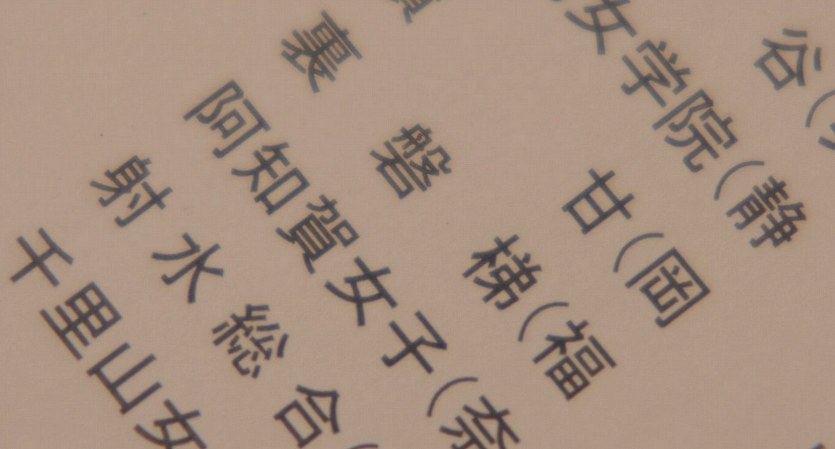 谷(
女学院(静
甘(岡
裏磐梯(福
阿知賀女子(奈
射水総合(
千里山女